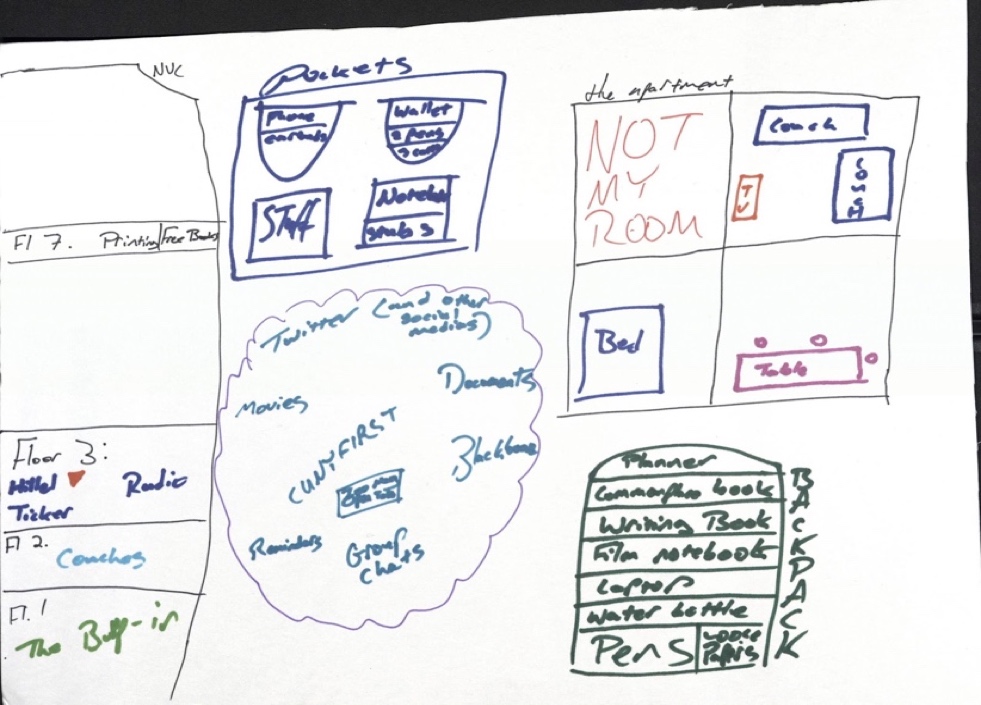 NVC
Fl 7. Printing Free Books
Floor 3:
Hillel Radio
Ticker
Fl 2.
Couches
Fl. 1
The Buff-in
Pockets
Phone
earbuds
Wallet
3 pens
Staff
the apartment
NOT
MY
ROOM
Couch
COUCH
TV
Bed
Table
Twitter (and other
social
medias)
Movies
Documents
CUNYFIRST
Blackboard
Reminders
Group
chats
Planner
Commonplace book
Writing Book
Film notebook
Laptop
Water bottle
Pens
Loose
Papers
BACKPACK